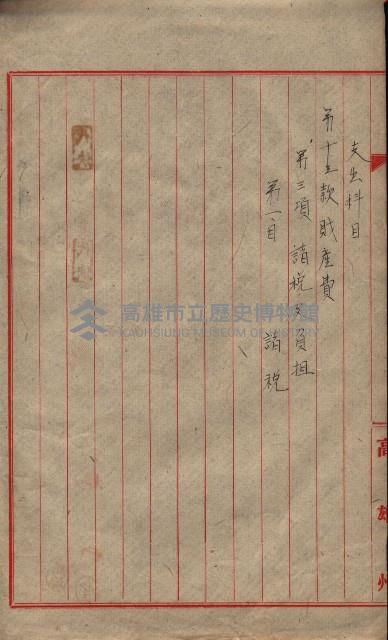 支出科目
第十五款財産費
第三項 諸税及負担
第一目 諸税
高雄州
高雄市立歷史博物館
KAOHSIUNG MUSEUM OF HISTORY